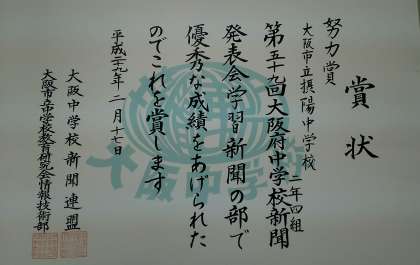 賞状
努力賞
大阪市立摂陽中学校
二年四組
第五十九回大阪府中学校新聞
発表会学習新聞の部で
優秀な成績をあげられた
のでこれを賞します
平成二十九年二月十七日
大阪中学校新聞連盟
大阪市立中学校教育研究会情報技術部